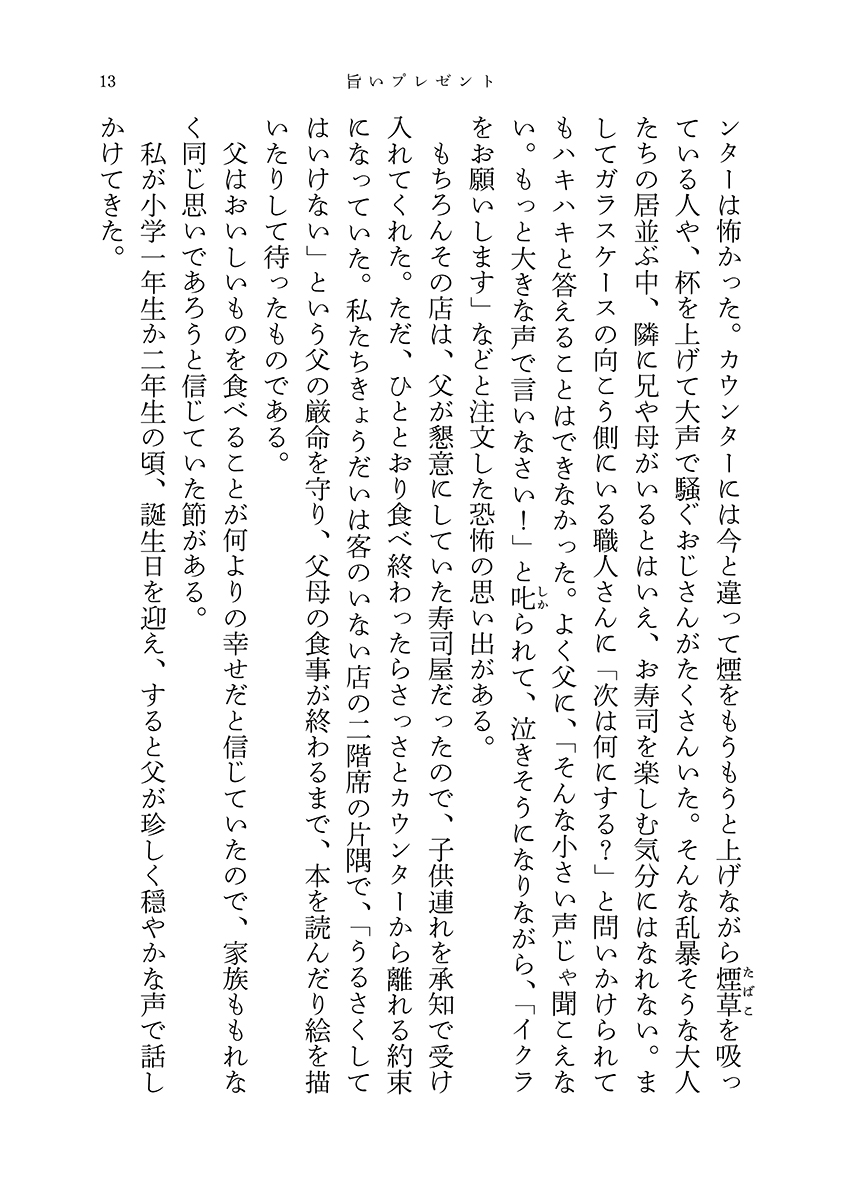 13
旨いプレゼント
ンターは怖かった。カウンターには今と違って煙をもうもうと上げながら煙草を吸っ
たばこ
ている人や、杯を上げて大声で騒ぐおじさんがたくさんいた。そんな乱暴そうな大人
たちの居並ぶ中、隣に兄や母がいるとはいえ、お寿司を楽しむ気分にはなれない。ま
してガラスケースの向こう側にいる職人さんに「次は何にする?」と問いかけられて
もハキハキと答えることはできなかった。よく父に、「そんな小さい声じゃ聞こえな
い。もっと大きな声で言いなさい!」と叱られて、泣きそうになりながら、「イクラ
しか
をお願いします」などと注文した恐怖の思い出がある。
もちろんその店は、父が懇意にしていた寿司屋だったので、子供連れを承知で受け
入れてくれた。ただ、ひととおり食べ終わったらさっさとカウンターから離れる約束
になっていた。私たちきょうだいは客のいない店の二階席の片隅で、「うるさくして
はいけない」という父の厳命を守り、父母の食事が終わるまで、本を読んだり絵を描
いたりして待ったものである。
父はおいしいものを食べることが何よりの幸せだと信じていたので、家族ももれな
く同じ思いであろうと信じていた節がある。
私が小学一年生か二年生の頃、誕生日を迎え、すると父が珍しく穏やかな声で話し
かけてきた。